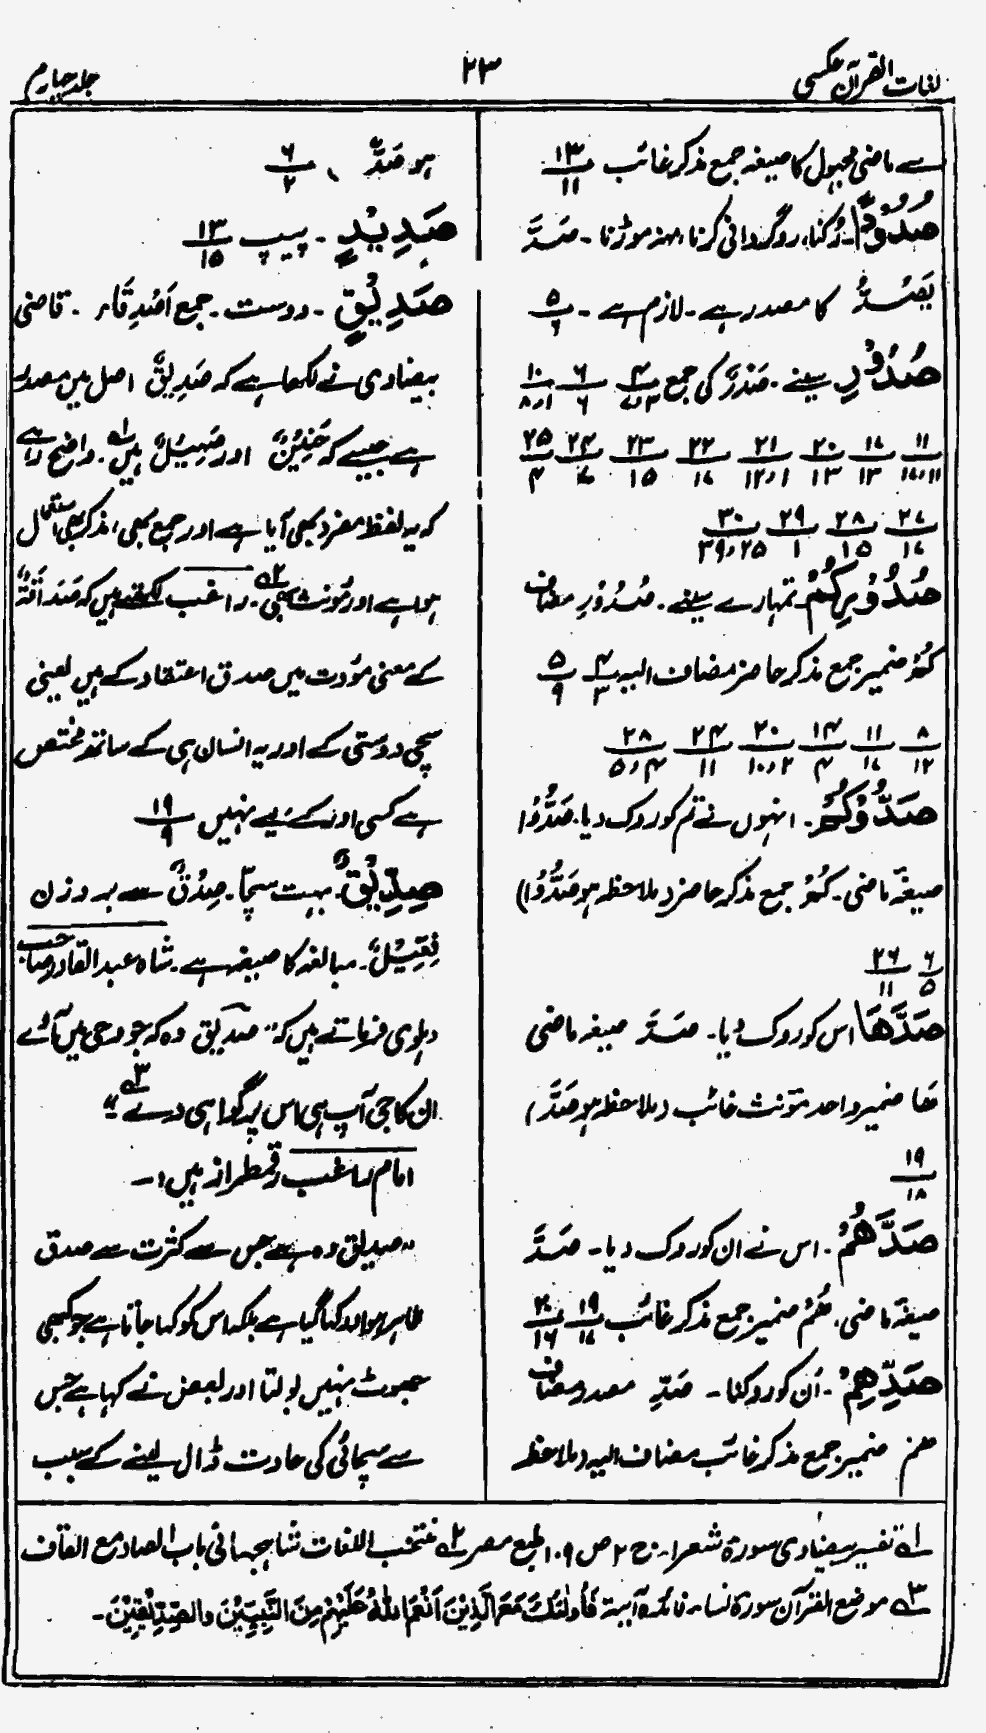 لغات القرآن عکسی
۲۳
جلد چہارم
سے ماضی مجہول کا صیغہ جمع مذکر غائب ۱۳/۱۱
صُدُوْدًا۔ رُکنا، روگردانی کرنا، منہ موڑنا۔ صَدَّ
یَصُدُّ کا مصدر ہے۔ لازم ہے۔ ۵/۶
صُدُوْرِ سینے۔ صَدْرٌ کی جمع ۴/۳،۷ ۶/۶ ۱۰/۸،۱
۱۱/۱۱،۱۷ ۱۷/۱۳ ۲۰/۱۳ ۲۱/۱۲،۱ ۲۲/۱۷ ۲۳/۱۵ ۲۴/۷ ۲۵/۴
۲۷/۱۷ ۲۸/۱۵ ۲۹/۱ ۳۰/۳۹،۲۵
صُدُوْرِکُمْ۔ تمہارے سینے۔ صُدُوْرِ مضاف
کُمْ ضمیر جمع مذکر حاضر مضاف الیہ ۴/۳ ۵/۹
۸/۱۲ ۱۱/۱۷ ۱۴/۴ ۲۰/۱۰،۲ ۲۴/۱۱ ۲۸/۵،۴
صَدُّوْکُمْ۔ انہوں نے تم کو روک دیا۔ صَدُّوْا
صیغہ ماضی۔ کُمْ جمع مذکر حاضر (ملاحظہ ہو صَدُّوْا)
۶/۵ ۲۶/۱۱
صَدَّھَا اس کو روک دیا۔ صَدَّ صیغہ ماضی
ھَا ضمیر واحد مؤنث غائب (ملاحظہ ہو صَدَّ)
۱۹/۱۸
صَدَّھُمْ۔ اس نے ان کو روک دیا۔ صَدَّ
صیغہ ماضی، ھُمْ ضمیر جمع مذکر غائب ۱۹/۱۷ ۲۰/۱۶
صَدِّھِمْ۔ اُن کو روکنا۔ صَدِّ مصدر مضاف
ھم ضمیر جمع مذکر غائب مضاف الیہ (ملاحظہ
ہو صَدَّ ) ۶/۲
صَدِیْدٍ۔ پیپ ۱۳/۱۵
صَدِیْقٍ۔ دوست۔ جمع اَصْدِقَاء۔ قاضی
بیضاوی نے لکھا ہے کہ صَدِیْقٌ اصل میں مصدر
ہے جیسے کہ حَنِیْنٌ اور صَہِیْلٌ ہیں۱؎۔ واضح رہے
کہ یہ لفظ مفرد بھی آیا ہے اور جمع بھی، مذکر بھی استعمال
ہوا ہے اور مؤنث بھی۲؎۔ راغب لکھتے ہیں کہ صَدَاقَۃٌ
کے معنی مؤدت میں صدق اعتقاد کے ہیں یعنی
سچی دوستی کے اور یہ انسان ہی کے ساتھ مختص
ہے کسی اور کے لیے نہیں ۱۹/۹
صِدِّیْقٌ۔ بہت سچّا۔ صِدْقٌ سے بر وزن
فِعِّیْلٌ۔ مبالغہ کا صیغہ ہے۔ شاہ عبدالقادر صاحب
دہلوی فرماتے ہیں کہ "صدیق وہ کہ جو وحی میں آئے
ان کا جی آپ ہی اس پر گواہی دے"۳؎
امام راغب رقمطراز ہیں:۔
"صدیق وہ ہے جس سے کثرت سے صدق
ظاہر ہو اور کہا گیا ہے بلکہ اس کو کہا جاتا ہے جو کبھی
جھوٹ نہیں بولتا اور بعض نے کہا ہے جس
سے سچائی کی عادت ڈال لینے کے سبب
۱؎ تفسیر بیضاوی سورۃ شعراء۔ ج ۲ ص ۱۰۹ طبع مصر ۲؎ منتخب اللغات شاہجہانی باب الصاد مع القاف
۳؎ موضح القرآن سورۃ نساء۔ فائدہ آیت فَاُولٰئِکَ مَعَ الَّذِیْنَ اَنْعَمَ اللّٰہُ عَلَیْھِمْ مِنَ النَّبِیِّیْنَ وَالصِّدِّیْقِیْنَ۔